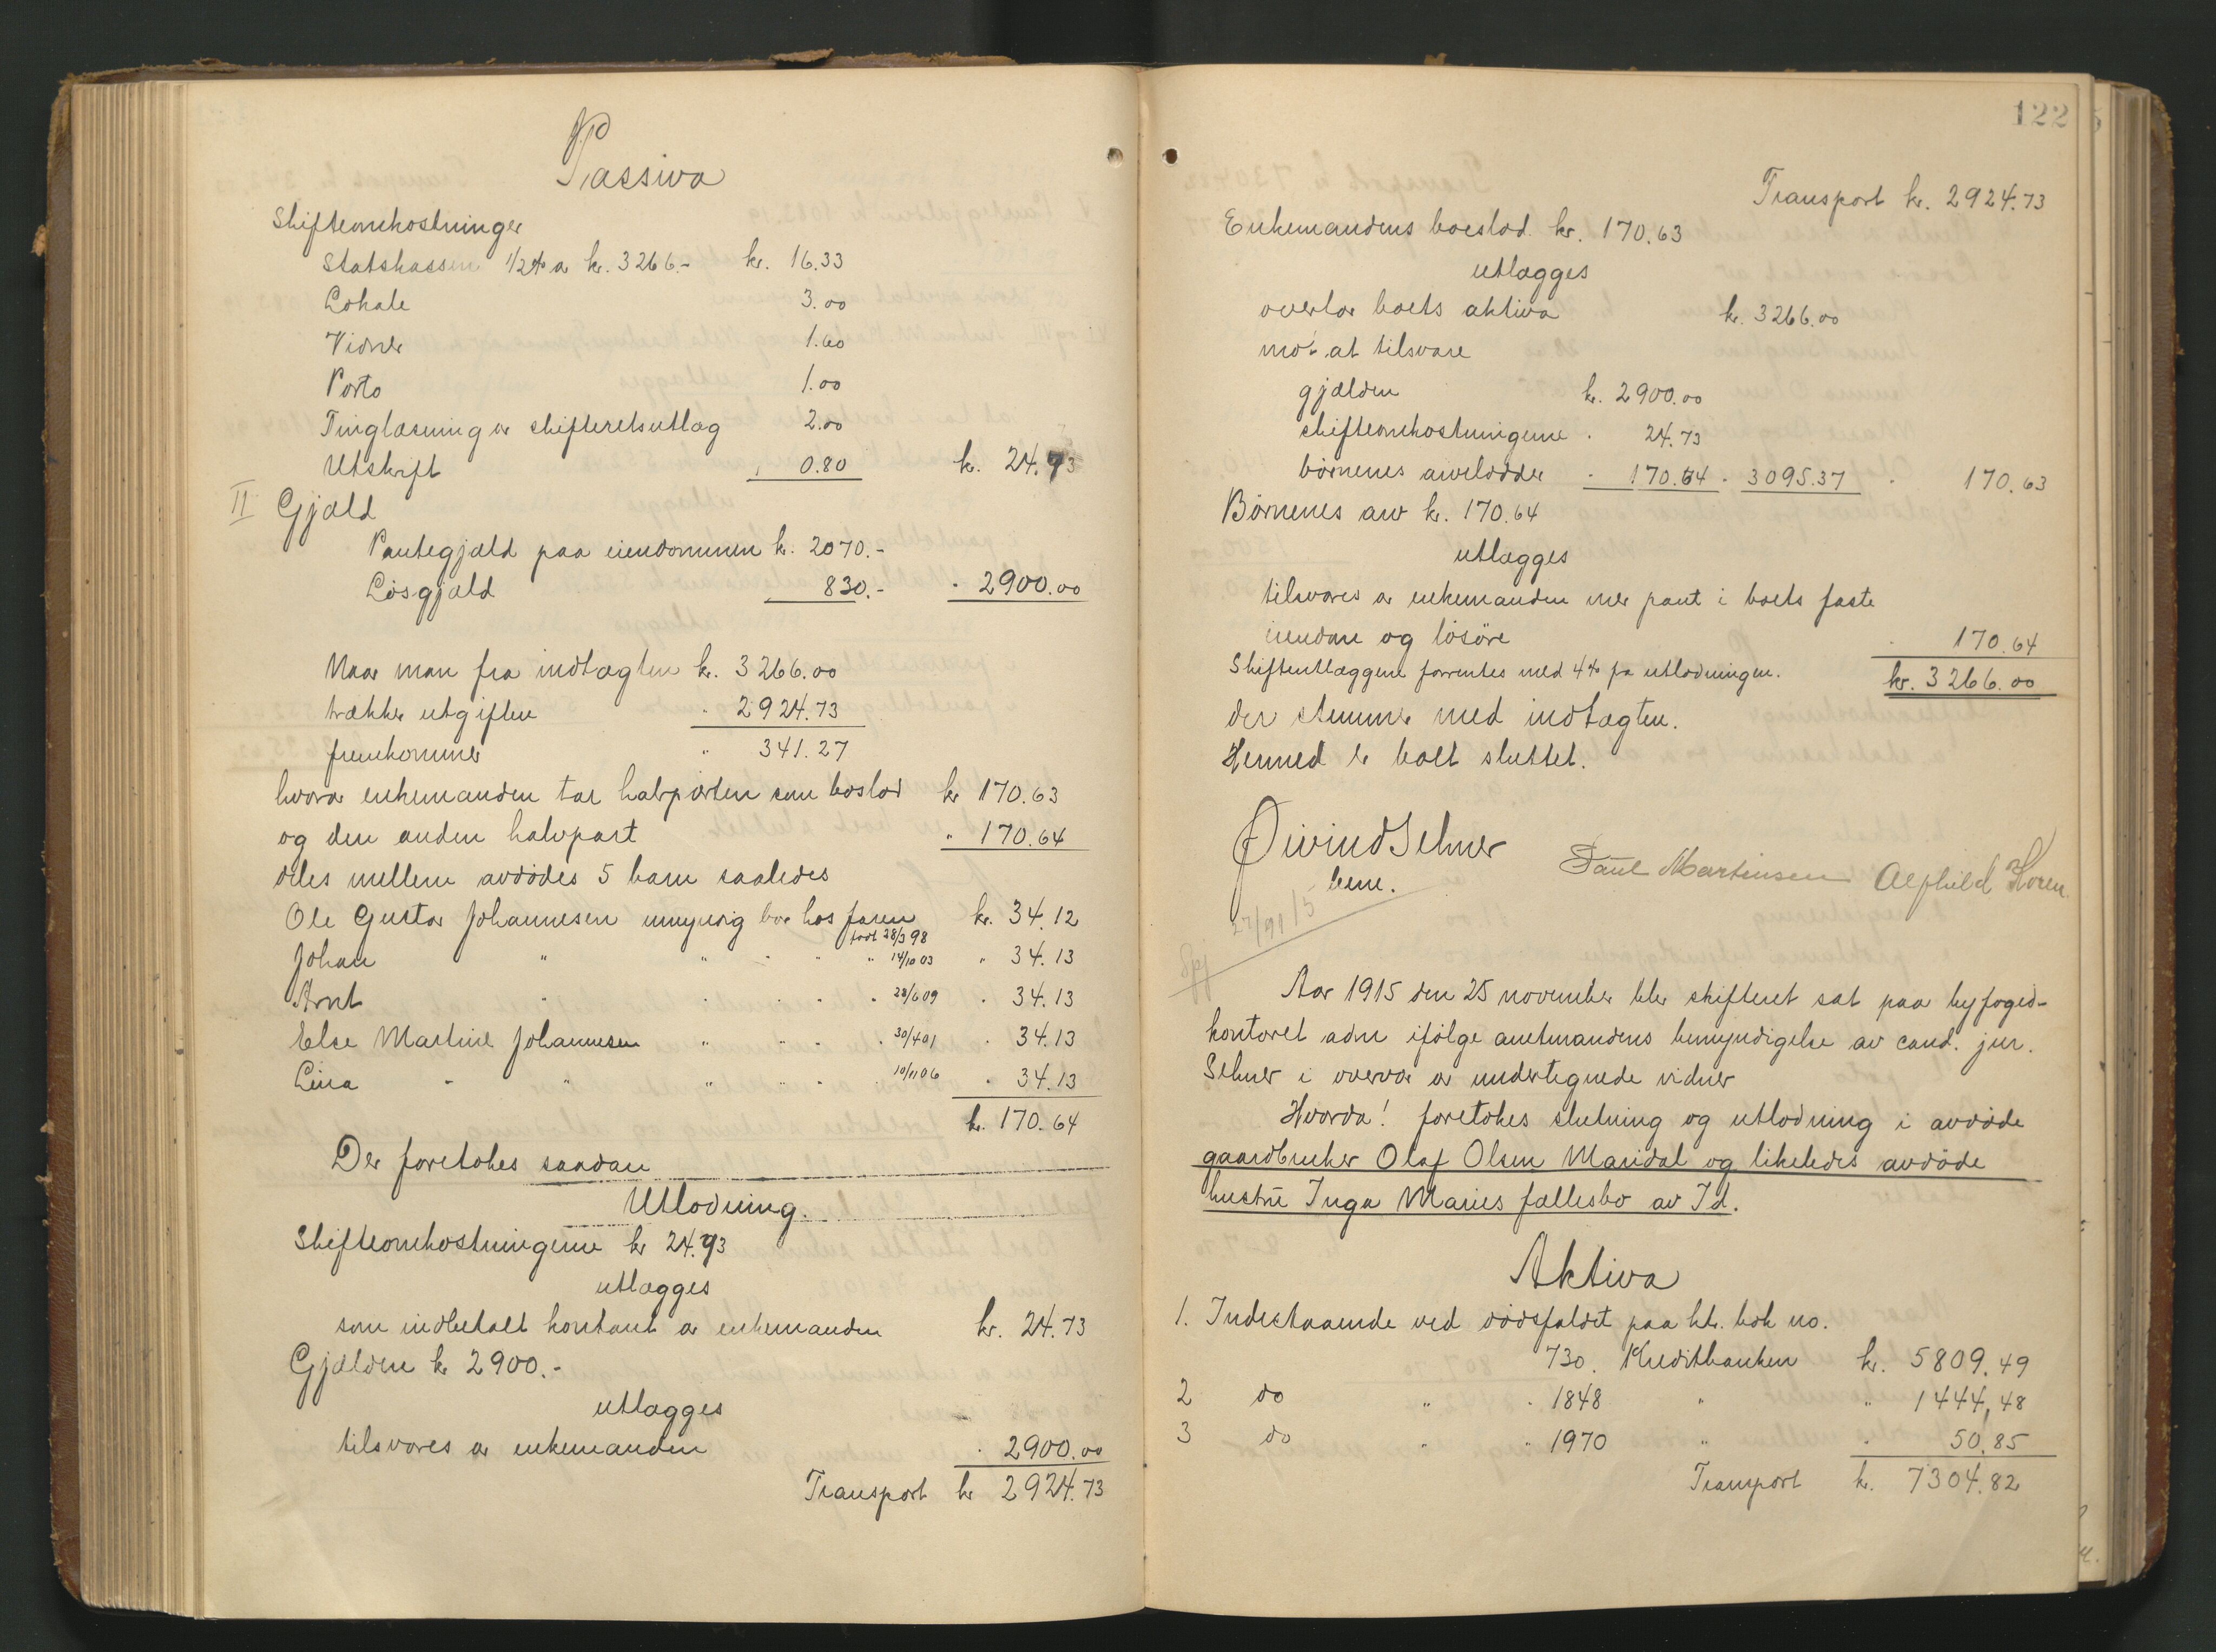 Passiva
Skifteomkostninger
Statskassen 1/2% av kr. 3266.- kr. 16.33
Lokale 3.00
Vidner 1.60
Porto 1.00
Tinglæsning av skifteretsutlæg 2.00
Utskrift " 0.80 kr. 24.73
II Gjæld
Pantegjæld paa eiendommen kr. 2070.-
Løsgjæld " 830.- " 2900.00
Naar man fra indtægten kr. 3266.00
trækker utgiften " 2924.73
fremkommer " 341.27
hvorav enkemanden tar halvparten som boslod kr 170.63
og den anden halvpart " 170.64
deles mellem avdødes 5 barn saaledes
Ole Gustav Johannesen umyndig bor hos faren kr. 34.12
født 28/3 98
Johan " " " " " 14/10 03 " 34.13
Arnt " " " " " 28/6 09 " 34.13
Else Martine Johannesen " " " " 30/4 01 " 34.13
Lina " " " " " " 10/11 06 " 34.13
kr. 170.64
Der foretokes saadan
Utlodning.
Skifteomkostningerne kr 24.73
utlægges
som indbetalt kontant av enkemanden kr. 24.73
Gjælden kr 2900.-
utlægges
tilsvares av enkemanden " 2900.00
Transport kr 2924.73
122
Transport kr. 2924.73
Enkemandens boeslod kr. 170.63
utlægges
overtar boets aktiva kr. 3266.00
mot at tilsvare
gjælden kr. 2900.00
skifteomkostningerne " 24.73
børnenes arvelodder " 170.64 " 3095.37 " 170.63
Børnenes arv kr. 170.64
utlægges
tilsvares av enkemanden mer pant i boets faste
eiendom og løsøre " 170.64
Skifteutlæggene forrentes med 4% fra utlodningen. kr. 3266.00
der stemmer med indtægten.
Hermed er boet sluttet.
Øivind Selmer
bem. Paul Martinsen Alfhild Horen
27/11 15
Aar 1915 den 25 november blev skifteret sat paa byfoged-
kontoret adm ifølge amtmandens bemyndigelse av cand. jur.
Selmer i overvær av undertegnede vidner
Hvorda! foretokes slutning og utlodning i avdøde
gaardbruker Olaf Olsen Maridal og likeledes avdøde
hustru Inga Maries fællesbo av Id.
Aktiva
1. Indestaaende ved dødsfaldet paa kts. bok no.
730. Kreditbanken kr. 5809.49
2 do " " 1848 " " 1444,48
3 do " " 1970 " " 50.85
Transport kr. 7304.82